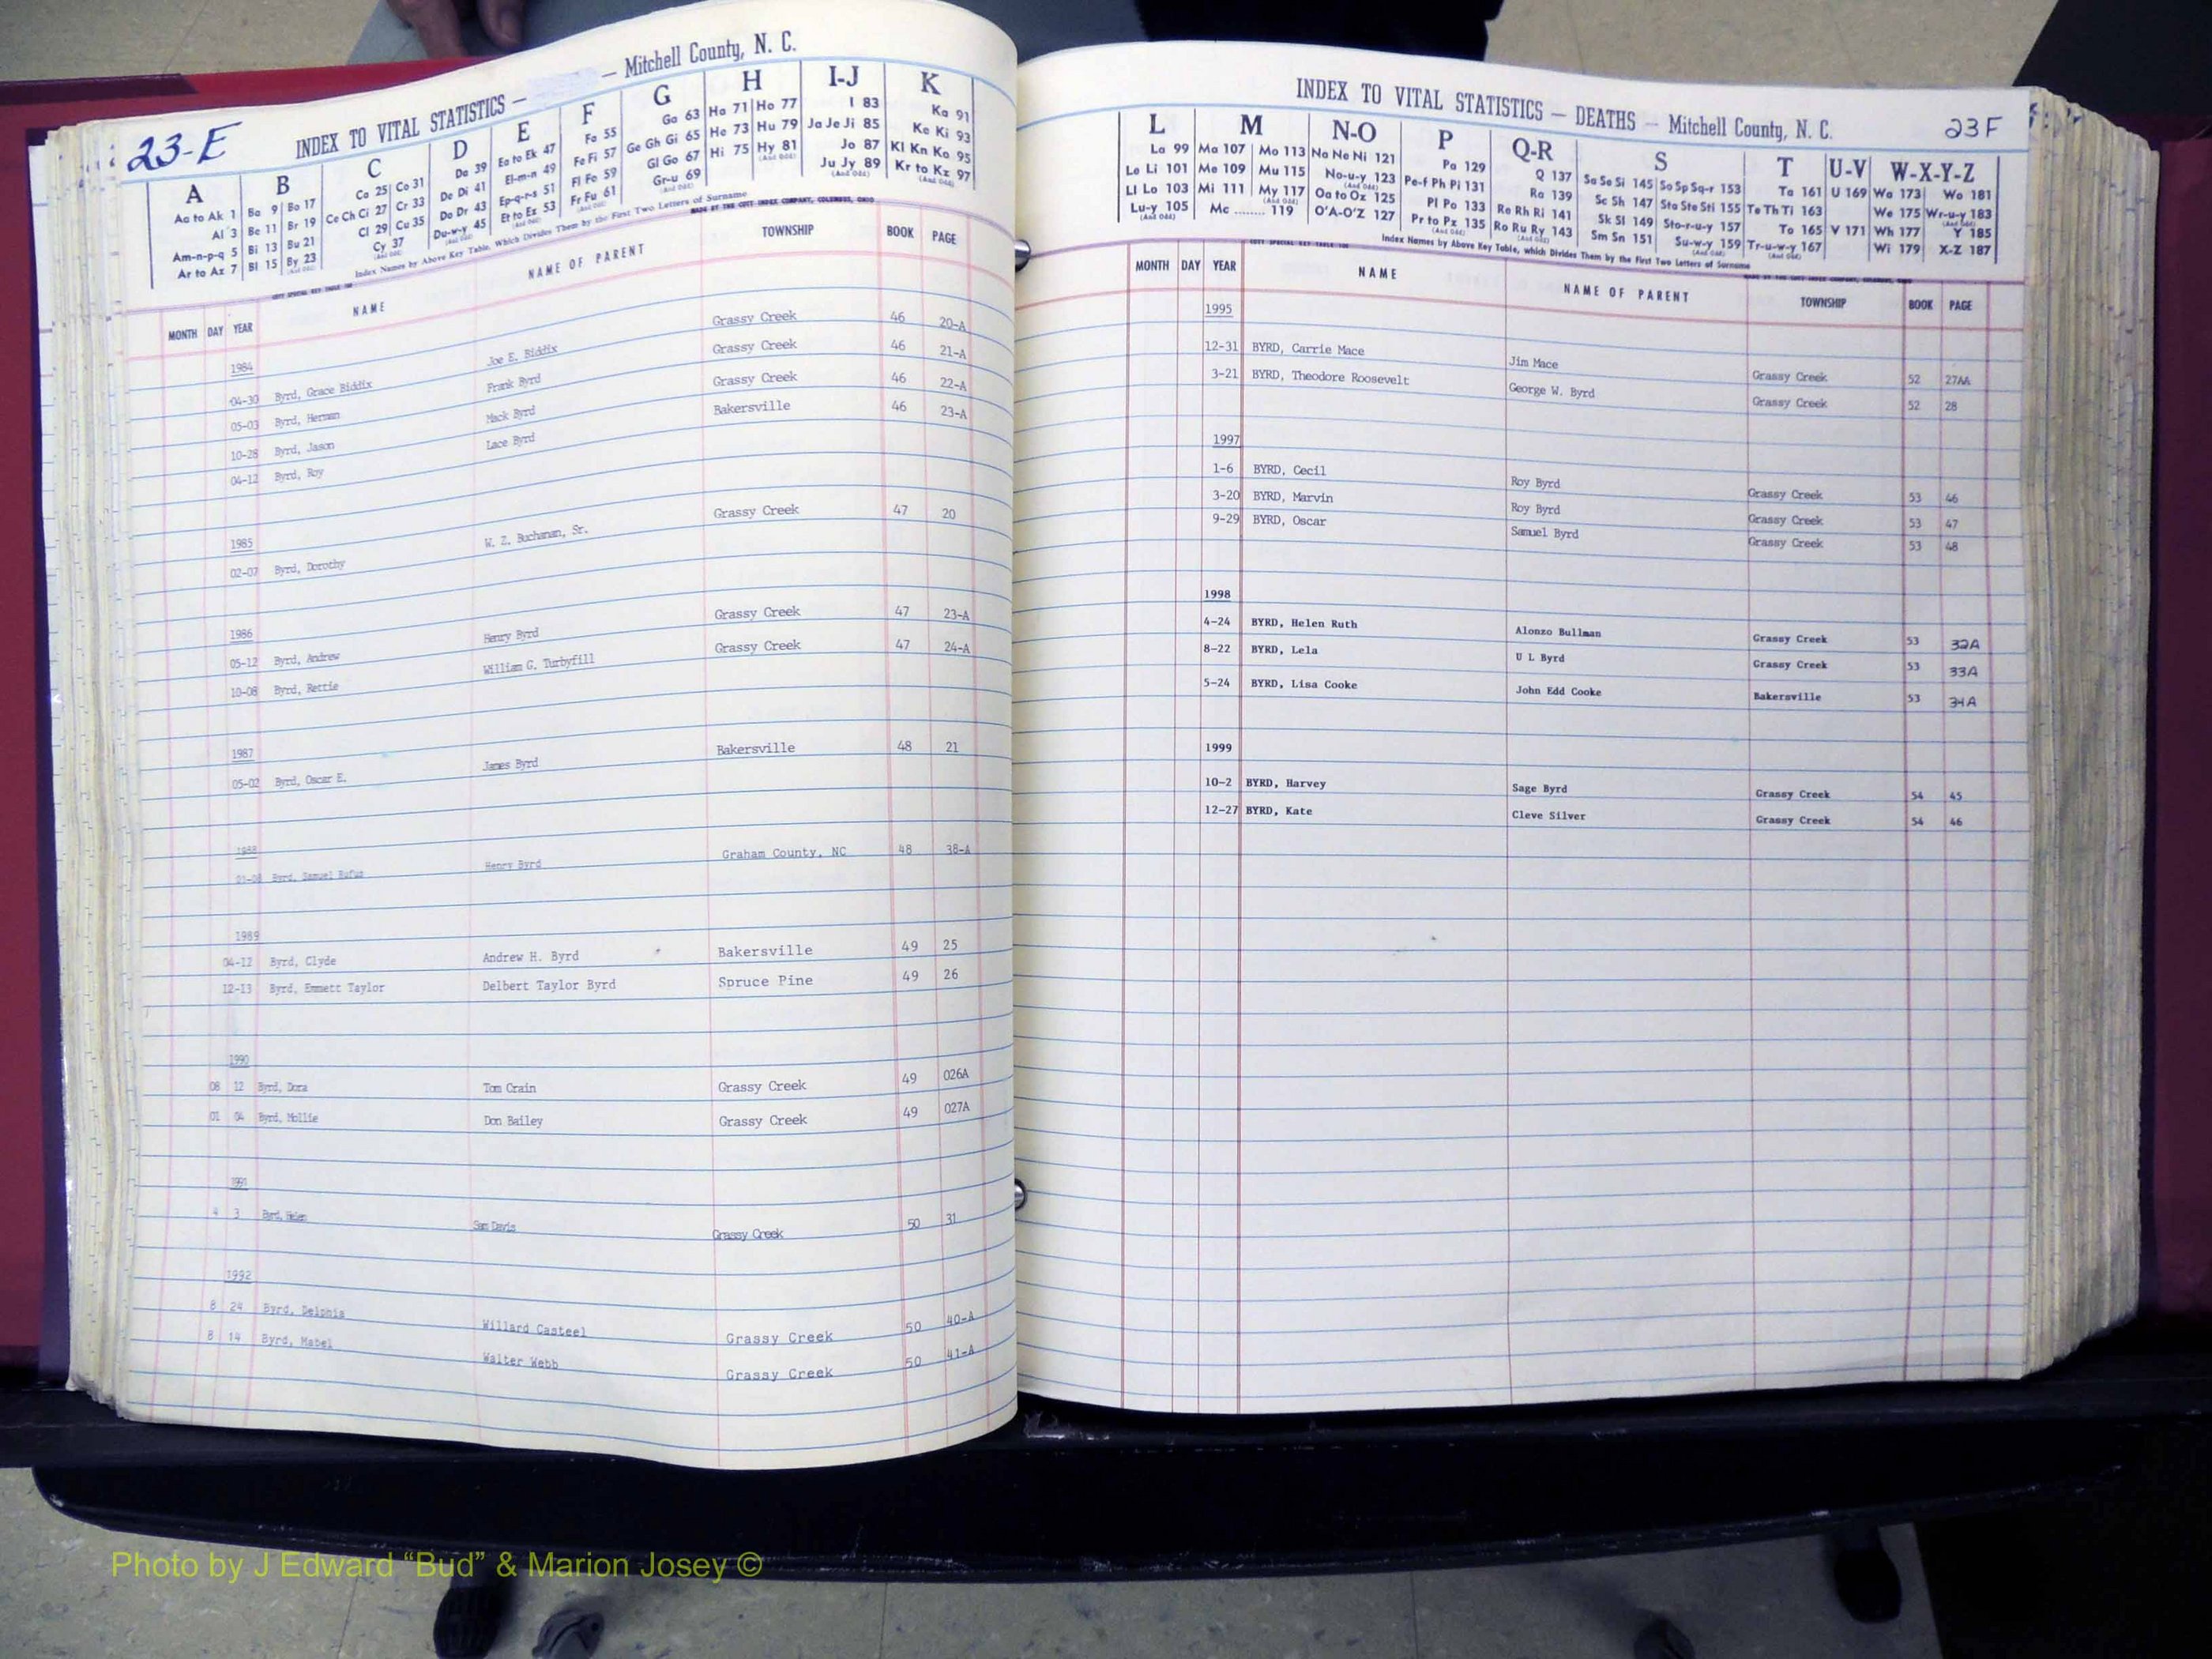 23-E
INDEX TO VITAL STATISTICS — — Mitchell County, N. C.
A B C D E F G H I-J K
Aa to Ak 1
Al 3
Am-n-p-q 5
Ar to Az 7
Ba 9 Bo 17
Be 11 Br 19
Bi 13 Bu 21
Bl 15 By 23
(And Odd)
Ca 25 Co 31
Ce Ch Ci 27 Cr 33
Cl 29 Cu 35
Cy 37
(And Odd)
Da 39
De Di 41
Do Dr 43
Du-w-y 45
(And Odd)
Ea to Ek 47
El-m-n 49
Ep-q-r-s 51
Et to Ez 53
(And Odd)
Fa 55
Fe Fi 57
Fl Fo 59
Fr Fu 61
(And Odd)
Ga 63
Ge Gh Gi 65
Gl Go 67
Gr-u 69
(And Odd)
Ha 71 Ho 77
He 73 Hu 79
Hi 75 Hy 81
(And Odd)
I 83
Ja Je Ji 85
Jo 87
Ju Jy 89
(And Odd)
Ka 91
Ke Ki 93
Kl Kn Ko 95
Kr to Kz 97
(And Odd)
Index Names by Above Key Table, Which Divides Them by the First Two Letters of Surname
MADE BY THE COTT INDEX COMPANY, COLUMBUS, OHIO
MONTH DAY YEAR NAME NAME OF PARENT TOWNSHIP BOOK PAGE
1984
04-30 Byrd, Grace Biddix Joe E. Biddix Grassy Creek 46 20-A
05-03 Byrd, Herman Frank Byrd Grassy Creek 46 21-A
10-28 Byrd, Jason Mack Byrd Grassy Creek 46 22-A
04-12 Byrd, Roy Lace Byrd Bakersville 46 23-A
1985
02-07 Byrd, Dorothy W. Z. Buchanan, Sr. Grassy Creek 47 20
1986
05-12 Byrd, Andrew Henry Byrd Grassy Creek 47 23-A
10-08 Byrd, Rettie William G. Turbyfill Grassy Creek 47 24-A
1987
05-02 Byrd, Oscar E. James Byrd Bakersville 48 21
1988
01-08 Byrd, Samuel Rufus Henry Byrd Graham County, NC 48 38-A
1989
04-12 Byrd, Clyde Andrew H. Byrd Bakersville 49 25
12-13 Byrd, Emmett Taylor Delbert Taylor Byrd Spruce Pine 49 26
1990
08 12 Byrd, Dora Tom Crain Grassy Creek 49 026A
01 04 Byrd, Mollie Don Bailey Grassy Creek 49 027A
1991
4 3 Byrd, Helen Sam Davis Grassy Creek 50 31
1992
8 24 Byrd, Delphia Willard Casteel Grassy Creek 50 40-A
8 14 Byrd, Mabel Walter Webb Grassy Creek 50 41-A
INDEX TO VITAL STATISTICS — DEATHS — Mitchell County, N. C.
23F
L M N-O P Q-R S T U-V W-X-Y-Z
La 99
Le Li 101
Ll Lo 103
Lu-y 105
(And Odd)
Ma 107 Mo 113
Me 109 Mu 115
Mi 111 My 117
(And Odd)
Mc ........ 119
Na Ne Ni 121
No-u-y 123
(And Odd)
Oa to Oz 125
O'A-O'Z 127
Pa 129
Pe-f Ph Pi 131
Pl Po 133
Pr to Pz 135
(And Odd)
Q 137
Ra 139
Re Rh Ri 141
Ro Ru Ry 143
(And Odd)
Sa Se Si 145 So Sp Sq-r 153
Sc Sh 147 Sta Ste Sti 155
Sk Sl 149 Sto-r-u-y 157
Sm Sn 151 Su-w-y 159
(And Odd)
Ta 161
Te Th Ti 163
To 165
Tr-u-w-y 167
(And Odd)
U 169
V 171
Wa 173 Wo 181
We 175 Wr-u-y 183
(And Odd)
Wh 177 Y 185
Wi 179 X-Z 187
Index Names by Above Key Table, which Divides Them by the First Two Letters of Surname
MONTH DAY YEAR NAME NAME OF PARENT TOWNSHIP BOOK PAGE
1995
12-31 BYRD, Carrie Mace Jim Mace Grassy Creek 52 27AA
3-21 BYRD, Theodore Roosevelt George W. Byrd Grassy Creek 52 28
1997
1-6 BYRD, Cecil Roy Byrd Grassy Creek 53 46
3-20 BYRD, Marvin Roy Byrd Grassy Creek 53 47
9-29 BYRD, Oscar Samuel Byrd Grassy Creek 53 48
1998
4-24 BYRD, Helen Ruth Alonzo Bullman Grassy Creek 53 32A
8-22 BYRD, Lela U L Byrd Grassy Creek 53 33A
5-24 BYRD, Lisa Cooke John Edd Cooke Bakersville 53 34A
1999
10-2 BYRD, Harvey Sage Byrd Grassy Creek 54 45
12-27 BYRD, Kate Cleve Silver Grassy Creek 54 46
Photo by J Edward “Bud” & Marion Josey ©